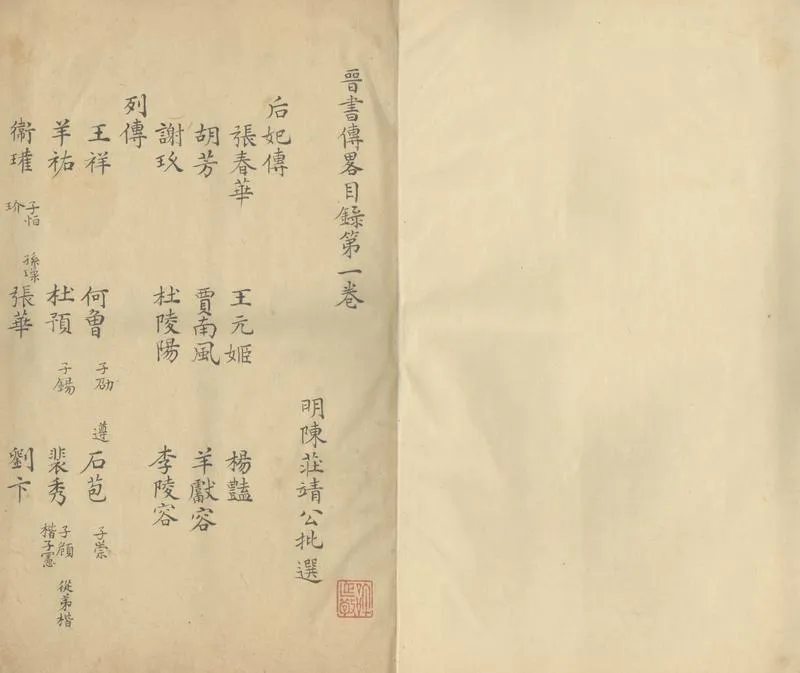 晉書傳畧目錄第一卷
明陳莊靖公批選
后妃傳
張春華 王元姬 楊豔
胡芳 賈南風 羊獻容
謝玖 杜陵陽 李陵容
列傳
王祥 何曾 子劭 遵 石苞 子崇
羊祜 杜預 子錫 裴秀 子頠 從弟楷 楷子憲
衞瓘 子恒 孫璪 玠 張華 劉卞